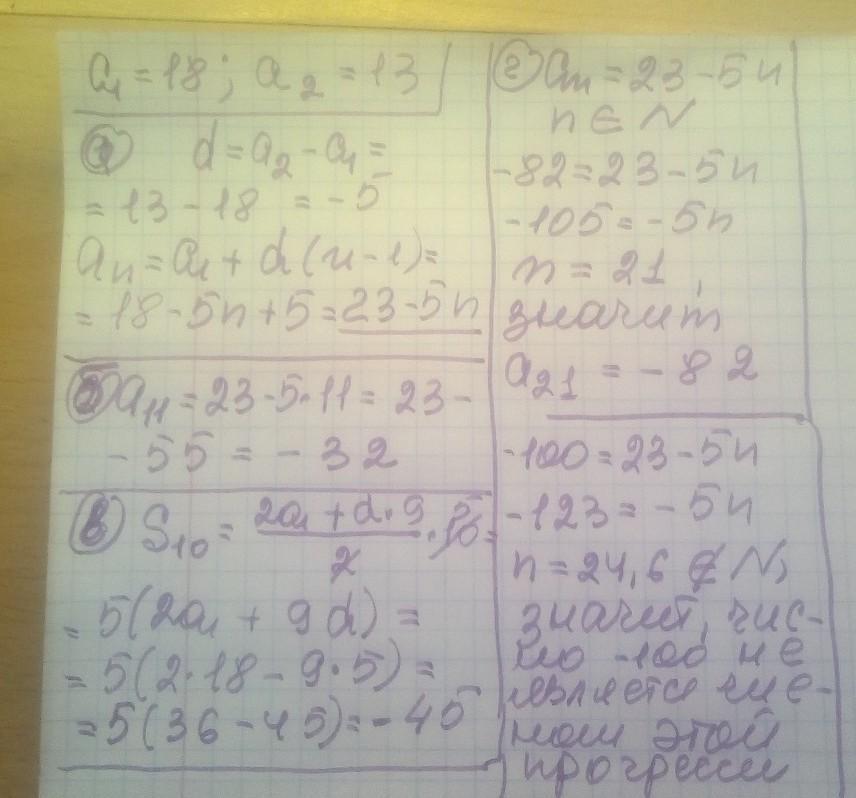 a₁ = 18; a₂ = 13
а) d = a₂ - a₁ =
= 13 - 18 = -5
aₙ = a₁ + d(n-1) =
= 18 - 5n + 5 = 23 - 5n
б) a₁₁ = 23 - 5·11 = 23 -
- 55 = -32
в) S₁₀ = (2a₁ + d·9)/2 · 10 =
= 5(2a₁ + 9d) =
= 5(2·18 - 9·5) =
= 5(36 - 45) = -45
г) aₙ = 23 - 5n
n ∈ N
-82 = 23 - 5n
-105 = -5n
n = 21,
значит
a₂₁ = -82
-100 = 23 - 5n
-123 = -5n
n = 24,6 ∉ N,
значит, чис-
ло -100 не
является чле-
ном этой
прогрессии